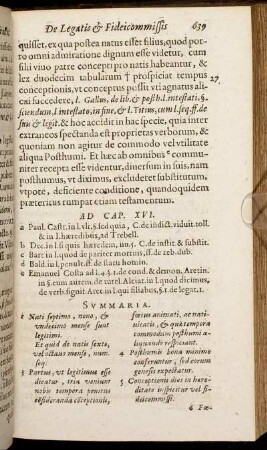 De Legatis & Fideicommissis 639
quisset, ex qua postea natus esset filius, quod por-
tò omni admiratione dignum esse videtur, cum
filii vivo patre concepti pro natis habeantur, &
lex duodecim tabularum † prospiciat tempus 27
conceptionis, vt conceptus possit vti agnatus ali-
cui succedere, l. Gallus, de lib. & posth. l. intestati. §.
sciendum, l. intestato, in fine, & l. Titius, cum l. seq. ff. de
suis & legit. & hoc accidit in hac specie, quia inter
extraneos spectanda est proprietas verborum, &
quoniam non agitur de commodo vel vtilitate
aliqua Posthumi. Et hæc ab omnibus commu-
niter recepta esse videntur, diversum in suis, nam
posthumus, vt diximus, excluderet substitutum,
vtpotè, deficiente conditione, quandoquidem
præteritus rumpat etiam testamentum.
AD CAP. XVI.
a Paul. Castr. in l. vlt. §. sed quia, C. de indict. viduit. toll.
& in l. hæredibus, ad Trebell.
b Dec. in l. si quis hæredem, nu. 5. C. de instit. & substit.
c Bart. in l. quod de pariter mortuis, ff. de reb. dub.
d Bald. in l. penult. ff. de statu homin.
e Emanuel Costa ad l. 4. §. 1. de cond. & demon. Aretin.
in §. cum autem. de tutel. Alciat. in l. quod dicimus,
de verb. signif. Aret. in l. qui filiabus, §. 1. de legat. 1.
SVMMARIA.
1 Nati septimo, nono, &
vndecimo mense sunt
legitimi.
Et quid de natis sexto,
vel octavo mense, num.
seq.
3 Partus, vt legitimus esse
dicatur, tria veniunt
nobis tempora penitus
consideranda conceptionis,
foetus animati, ac nati-
vitatis, & quæ tempora
commodum posthumi a-
liquando respiciant.
4 Posthumis bona minime
conferuntur, sed eorum
genesis expectatur.
5 Conceptionis dies in here-
ditate inspicitur vel fi-
deicommissi.
6 Foe-